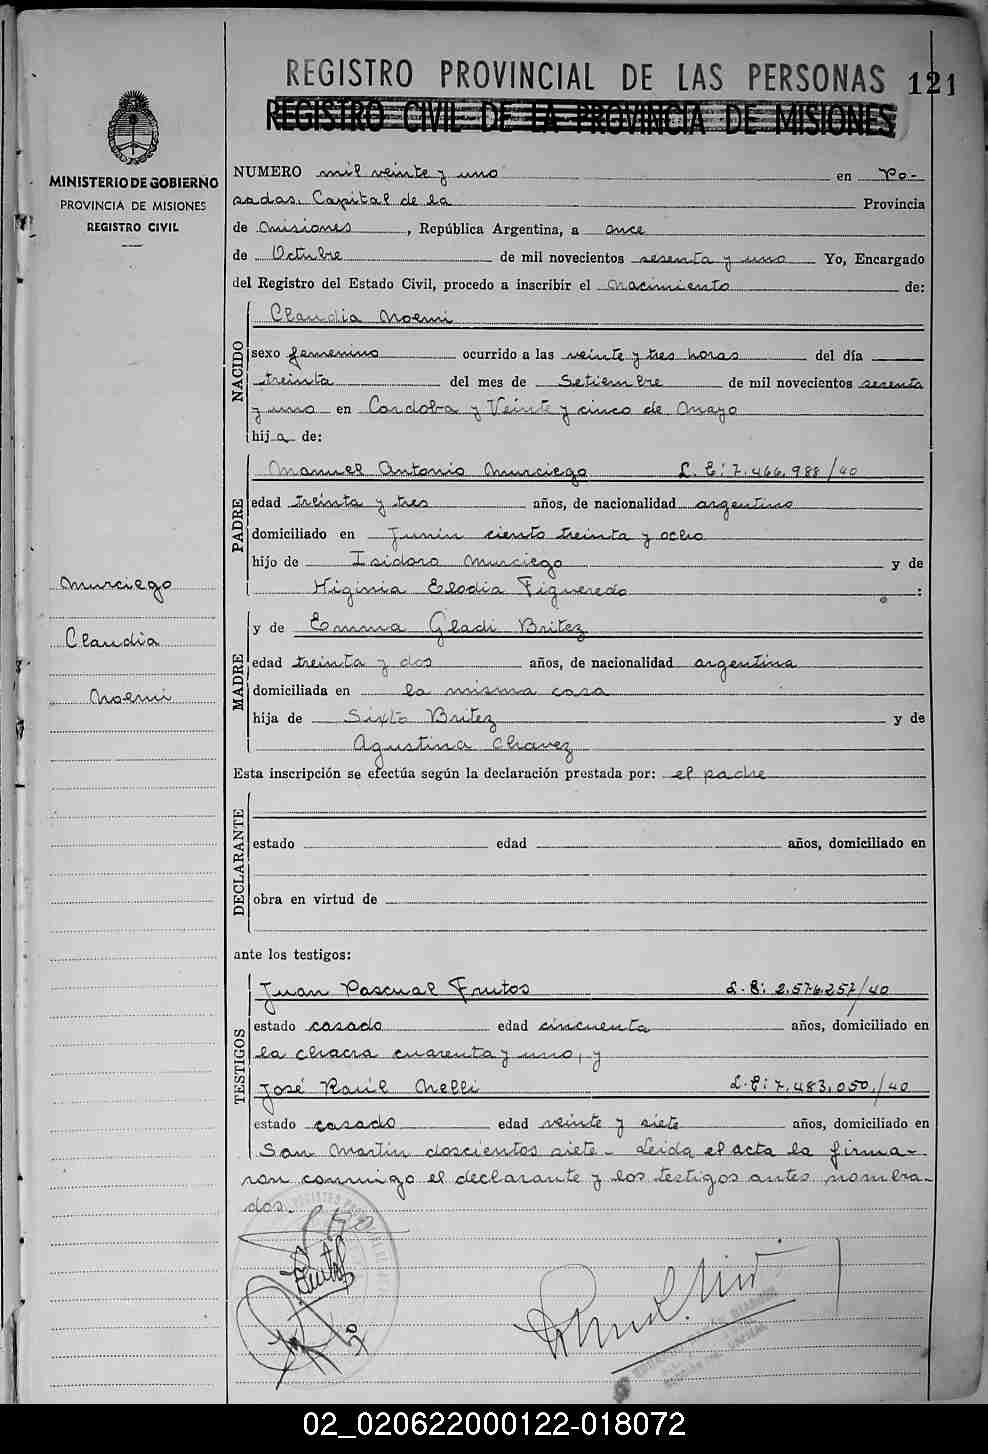 REGISTRO PROVINCIAL DE LAS PERSONAS 121
REGISTRO CIVIL DE LA PROVINCIA DE MISIONES
MINISTERIO DE GOBIERNO
PROVINCIA DE MISIONES
REGISTRO CIVIL
NUMERO mil veinte y uno en Po-
sadas. Capital de la Provincia
de Misiones, República Argentina, a once
de Octubre de mil novecientos sesenta y uno Yo, Encargado
del Registro del Estado Civil, procedo a inscribir el nacimiento de:
NACIDO
Claudia Noemi
sexo femenino ocurrido a las veinte y tres horas del día
treinta del mes de Setiembre de mil novecientos sesenta
y uno en Cordoba y Veinte y cinco de Mayo
hija de:
PADRE
Manuel Antonio Murciego L. E: 7.466.988/40
edad treinta y tres años, de nacionalidad argentino
domiciliado en Junin ciento treinta y ocho
hijo de Isidoro Murciego y de
Higinia Elodia Figueredo :
Murciego
Claudia
Noemi
MADRE
y de Emma Gladi Britez
edad treinta y dos años, de nacionalidad argentina
domiciliada en la misma casa
hija de Sixto Britez y de
Agustina Chavez
Esta inscripción se efectúa según la declaración prestada por: el padre
DECLARANTE
estado edad años, domiciliado en
obra en virtud de
ante los testigos:
TESTIGOS
Juan Pascual Frutos L. E: 2.576.257/40
estado casado edad cincuenta años, domiciliado en
la chacra cuarenta y uno, y
José Raúl Nelli L. E: 7.483.050/40
estado casado edad veinte y siete años, domiciliado en
San Martin doscientos siete - Leida el acta la firma-
ron conmigo el declarante y los testigos antes nombra-
dos.
02_020622000122-018072